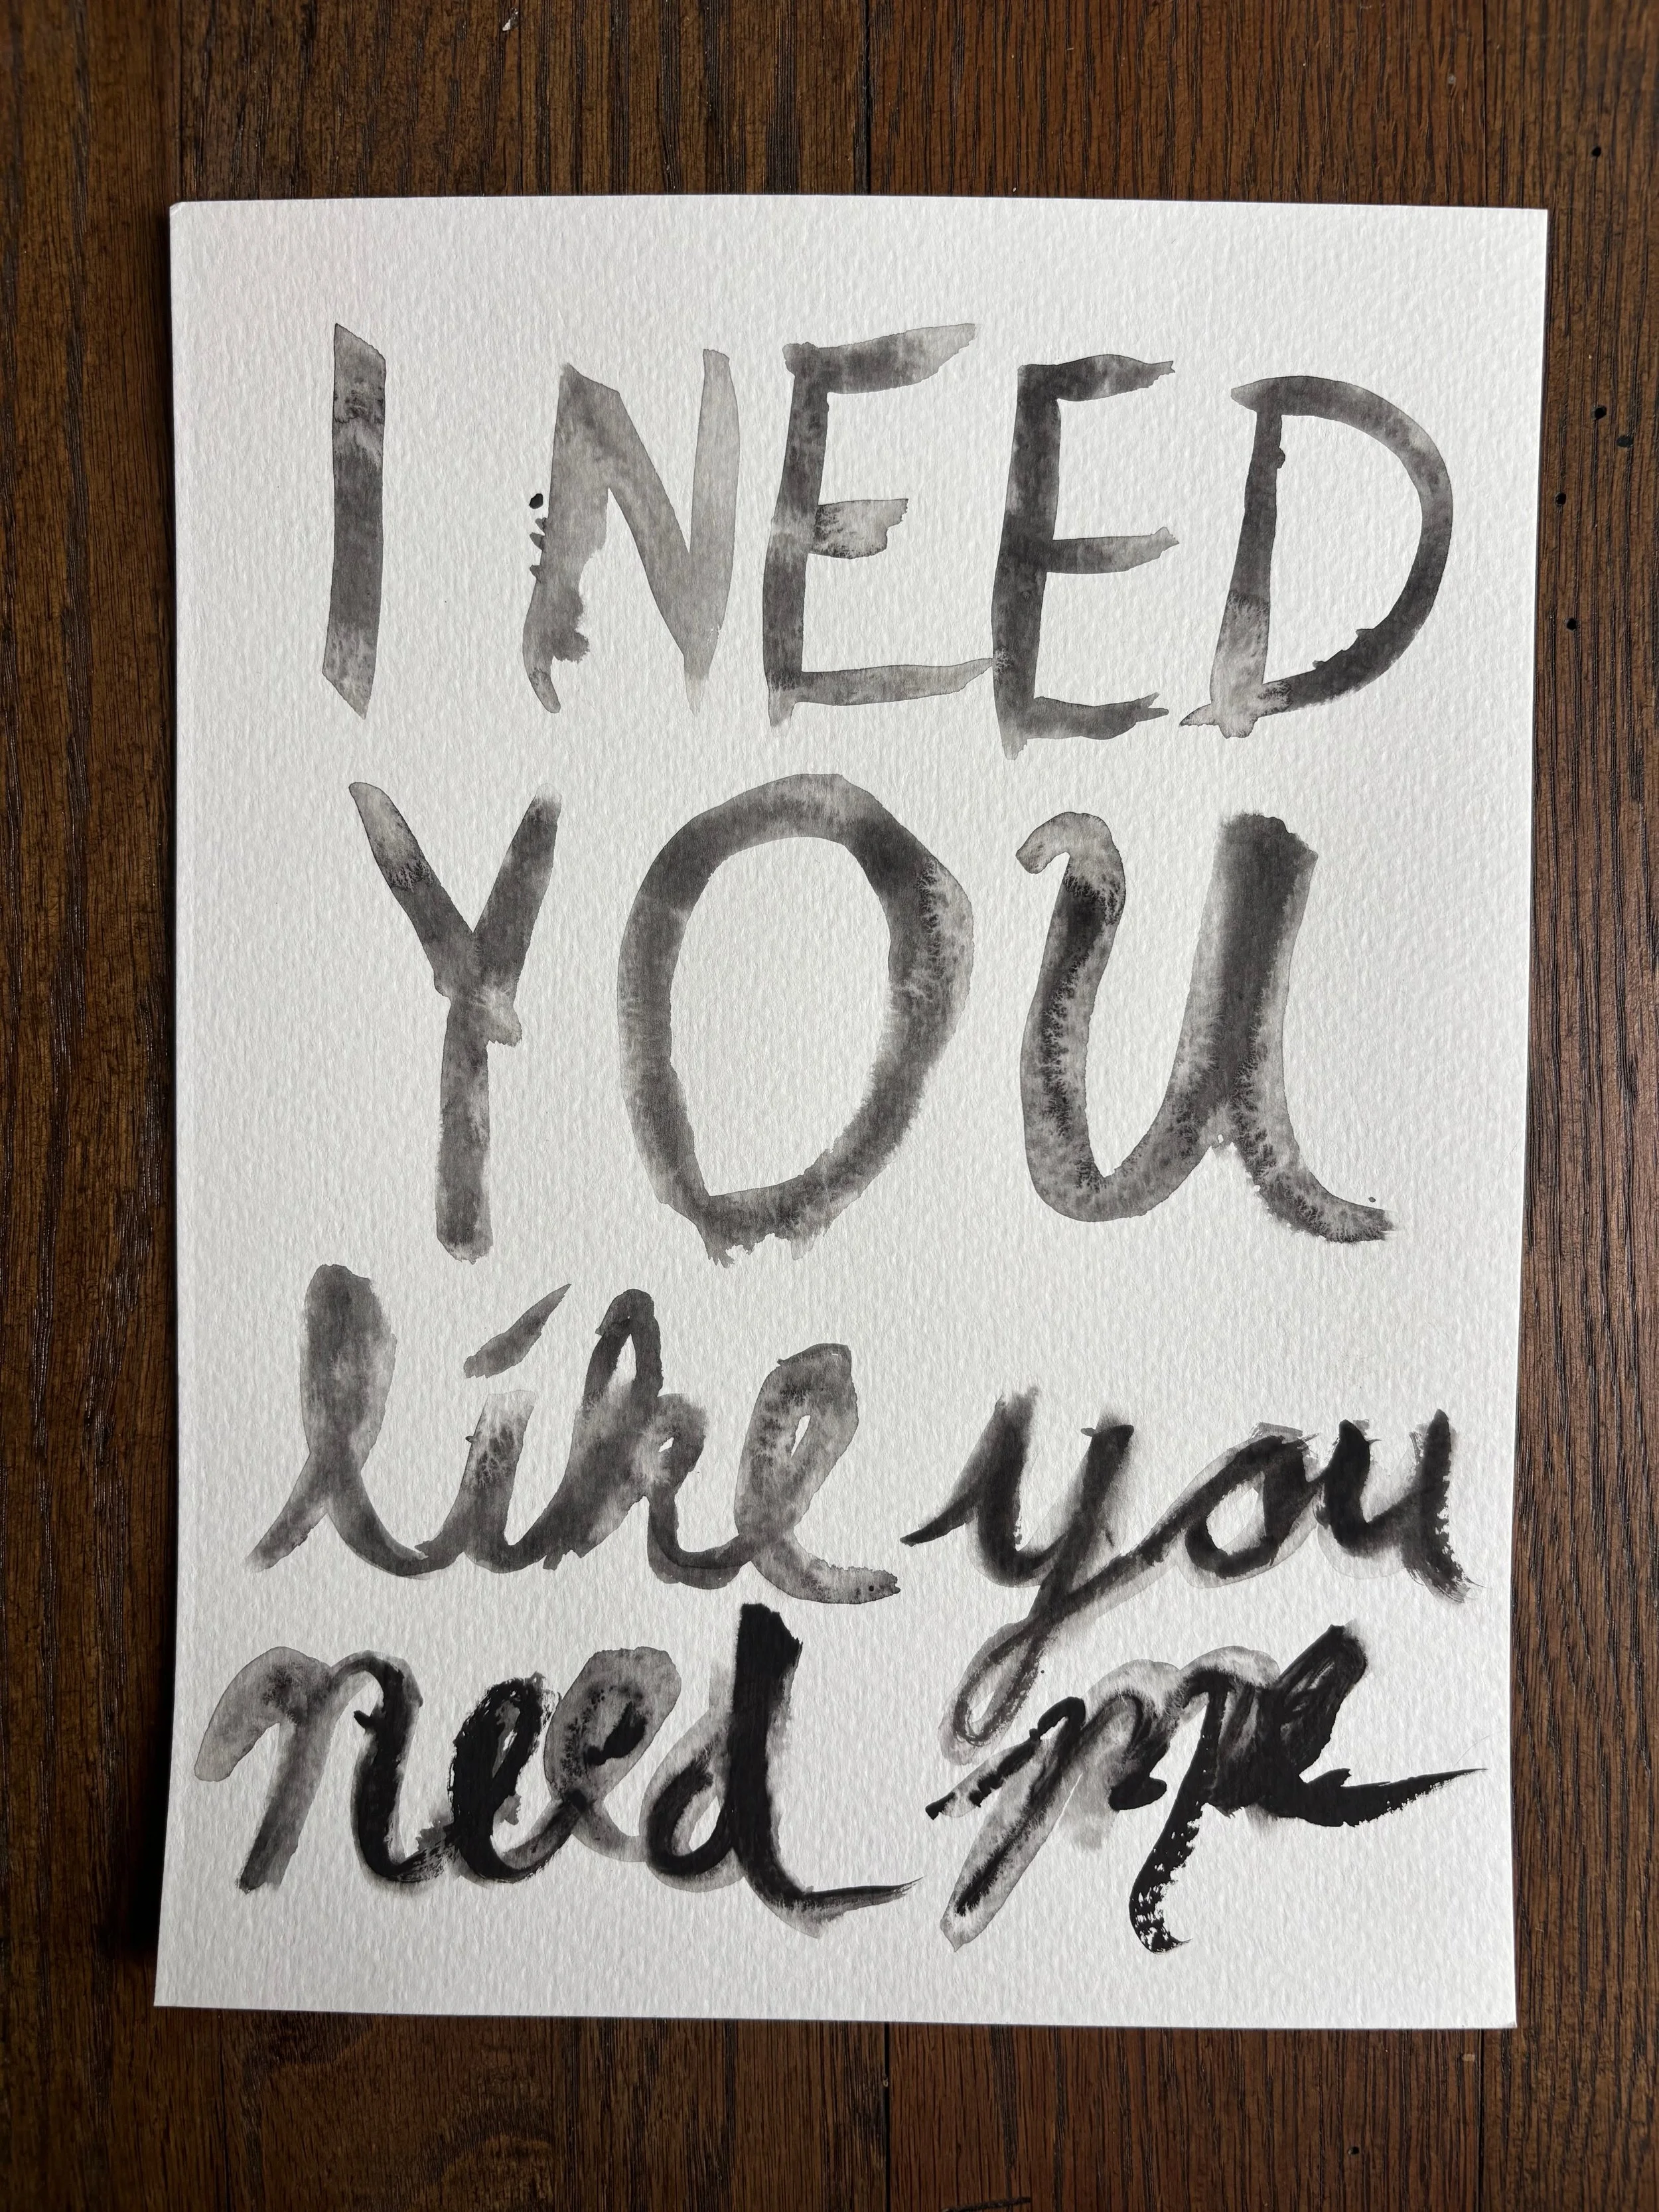 I NEED
YOU
like you
need me